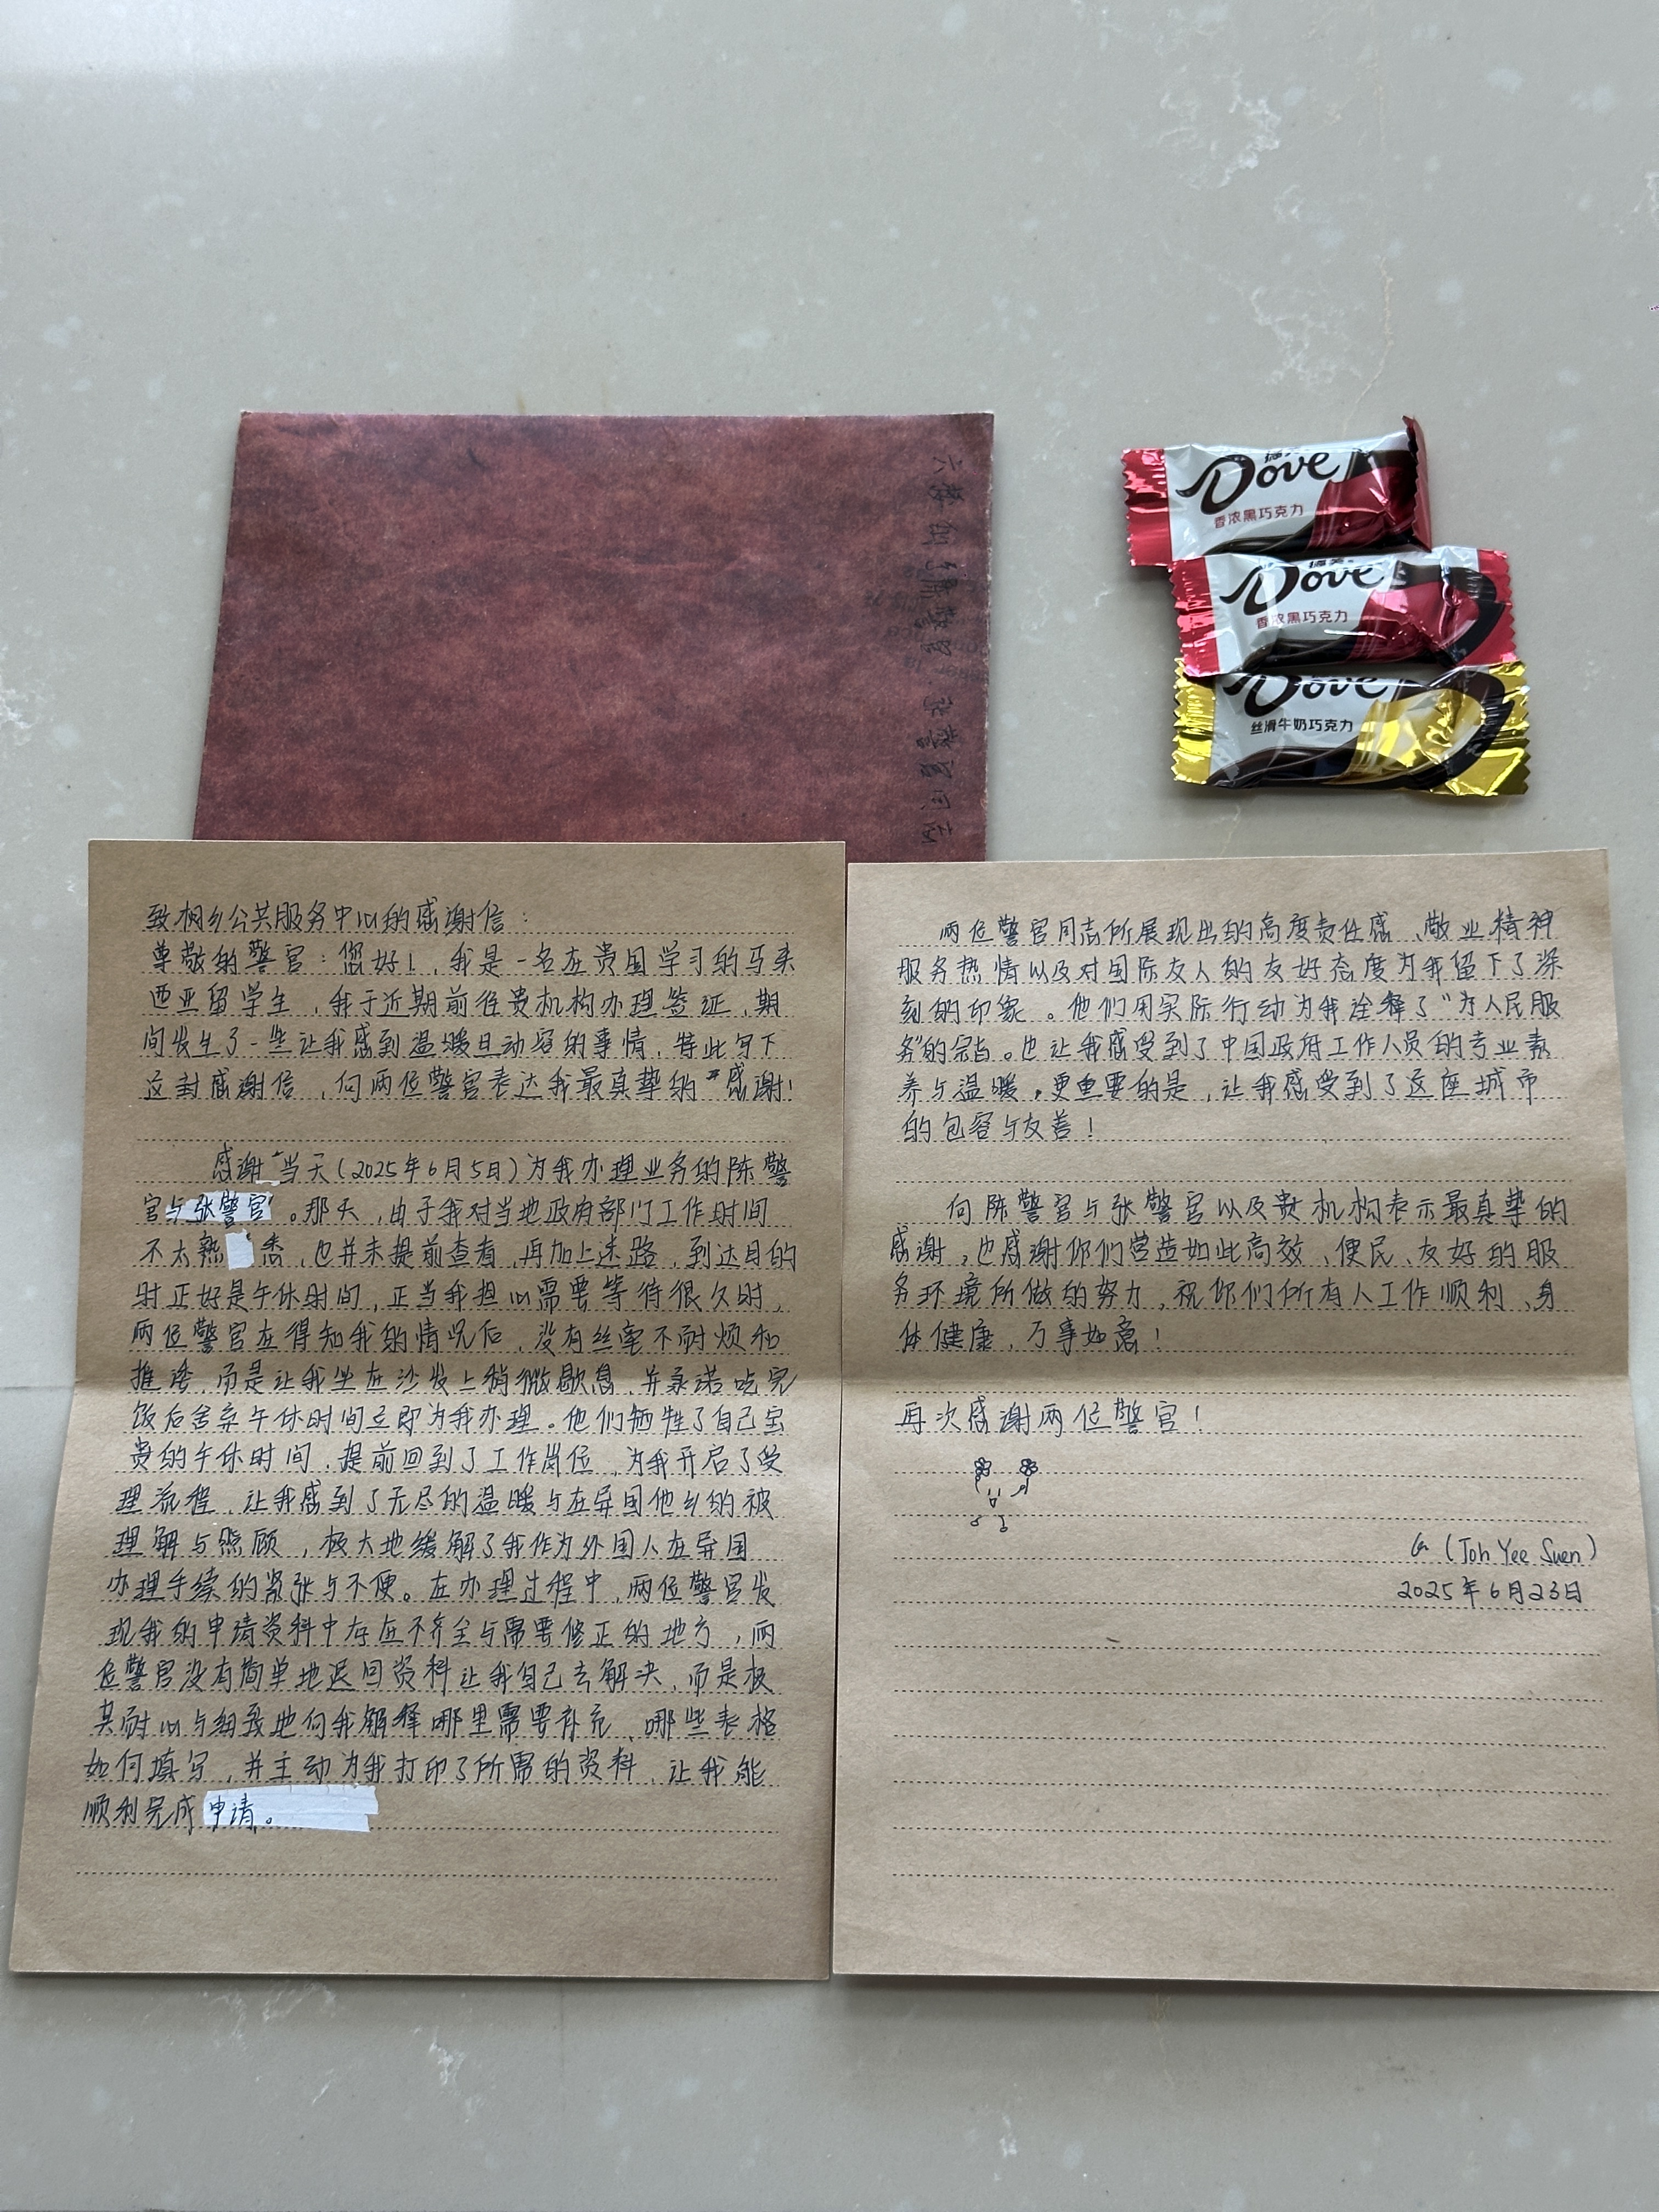 Dove
香浓黑巧克力
Dove
香浓黑巧克力
Dove
丝滑牛奶巧克力
致桐乡公共服务中心的感谢信：
尊敬的警官：您好！，我是一名在贵国学习的马来
西亚留学生，我于近期前往贵机构办理签证，期
间发生了一些让我感到温暖且动容的事情，特此写下
这封感谢信，向两位警官表达我最真挚的感谢！
感谢当天（2025年6月5日）为我办理业务的陈警
官与张警官。那天，由于我对当地政府部门工作时间
不太熟悉，也并未提前查看，再加上迷路，到达目的
时正好是午休时间，正当我担心需要等待很久时，
两位警官在得知我的情况后，没有丝毫不耐烦和
推诿，而是让我坐在沙发上稍微歇息，并承诺吃完
饭后舍弃午休时间立即为我办理。他们牺牲了自己宝
贵的午休时间，提前回到了工作岗位，为我开启了受
理流程，让我感到了无尽的温暖与在异国他乡的被
理解与照顾，极大地缓解了我作为外国人在异国
办理手续的紧张与不便。在办理过程中，两位警官发
现我的申请资料中存在不齐全与需要修正的地方，两
位警官没有简单地退回资料让我自己去解决，而是极
其耐心与细致地向我解释哪里需要补充、哪些表格
如何填写，并主动为我打印了所需的资料，让我能
顺利完成申请。
两位警官同志所展现出的高度责任感、敬业精神
服务热情以及对国际友人的友好态度为我留下了深
刻的印象。他们用实际行动为我诠释了“为人民服
务”的宗旨。也让我感受到了中国政府工作人员的专业素
养与温暖，更重要的是，让我感受到了这座城市
的包容与友善！
向陈警官与张警官以及贵机构表示最真挚的
感谢，也感谢你们营造如此高效、便民、友好的服
务环境所做的努力，祝你们所有人工作顺利、身
体健康，万事如意！
再次感谢两位警官！
(Toh Yee Suen)
2025年6月23日